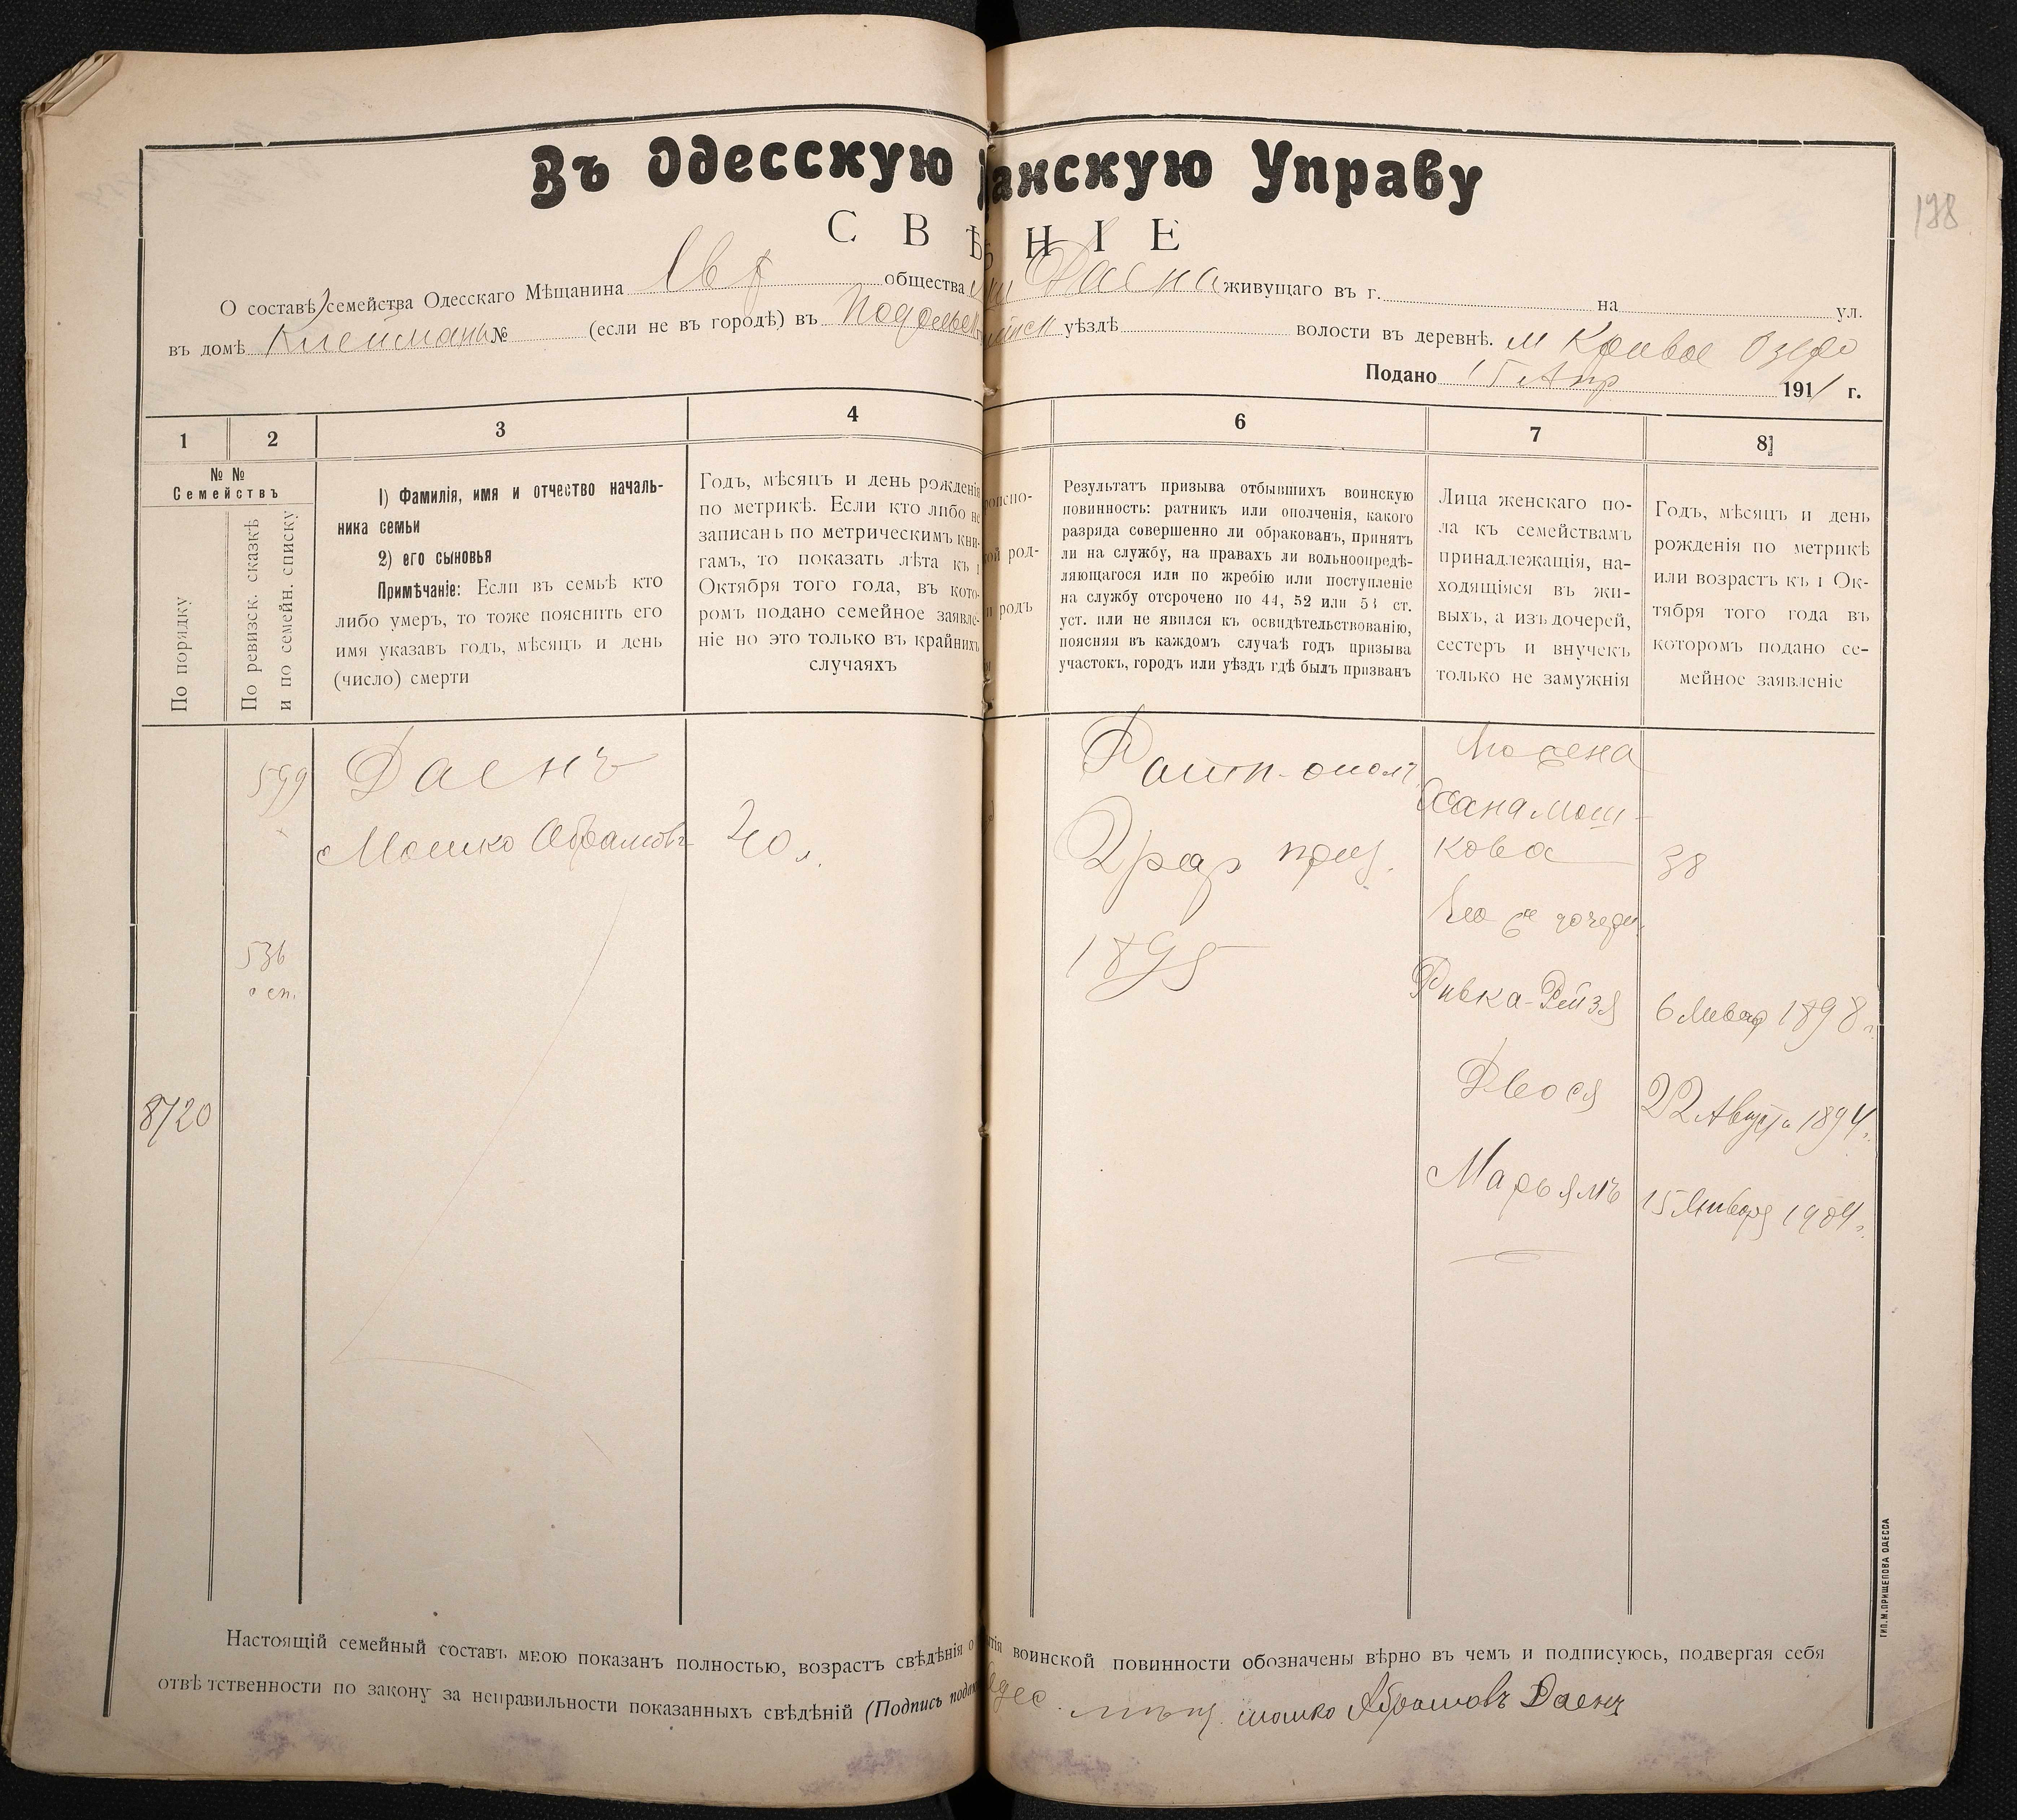 Въ Одесскую анскую Управу
СВѢ НІЕ
198
О составѣ семейства Одесскаго Мѣщанина Евр общества Даена живущаго въ г. на ул.
въ домѣ Клейманъ № (если не въ городѣ) въ Подольск уѣздѣ волости въ деревнѣ. м Кривое Озеро
Подано 15 Апр 1911 г.
1 2 3 4 6 7 8
№ №
Семействъ
По порядку
По ревизск. сказкѣ
и по семейн. списку
1) Фамилія, имя и отчество началь-
ника семьи
2) его сыновья
Примѣчаніе: Если въ семьѣ кто
либо умеръ, то тоже пояснить его
имя указавъ годъ, мѣсяцъ и день
(число) смерти
Годъ, мѣсяцъ и день рожденія
по метрикѣ. Если кто либо не
записанъ по метрическимъ кни-
гамъ, то показать лѣта къ 1
Октября того года, въ кото-
ромъ подано семейное заявле-
ніе но это только въ крайнихъ
случаяхъ
Результатъ призыва отбывшихъ воинскую
повинность: ратникъ или ополченія, какого
разряда совершенно ли обракованъ, принятъ
ли на службу, на правахъ ли вольноопредѣ-
ляющагося или по жребію или поступленіе
на службу отсрочено по 44, 52 или 53 ст.
уст. или не явился къ освидѣтельствованію,
поясняя въ каждомъ случаѣ годъ призыва
участокъ, городъ или уѣздъ гдѣ былъ призванъ
Лица женскаго по-
ла къ семействамъ
принадлежащія, на-
ходящіяся въ жи-
выхъ, а изъ дочерей,
сестеръ и внучекъ
только не замужнія
Годъ, мѣсяцъ и день
рожденія по метрикѣ
или возрастъ къ 1 Ок-
тября того года въ
которомъ подано се-
мейное заявленіе
599
Даенъ
Мошко Абрамовъ
40 л.
536
о сп.
8720
Ратн-ополч
2 раз приз.
1895
жена
Хана Мош-
кова
38
Его дочери
Ривка-Рейзя 6 Январ 1898 г.
Двося 22 Августа 1894 г.
Марьямъ 15 Января 1904 г.
Настоящій семейный составъ мною показанъ полностью, возрастъ свѣдѣнія о воинской повинности обозначены вѣрно въ чемъ и подписуюсь, подвергая себя
отвѣтственности по закону за неправильности показанныхъ свѣдѣній (Подпись Одес. мѣщ. Мошко Абрамовъ Даенъ
ТИП. М. ПРИЩЕПОВА ОДЕССА